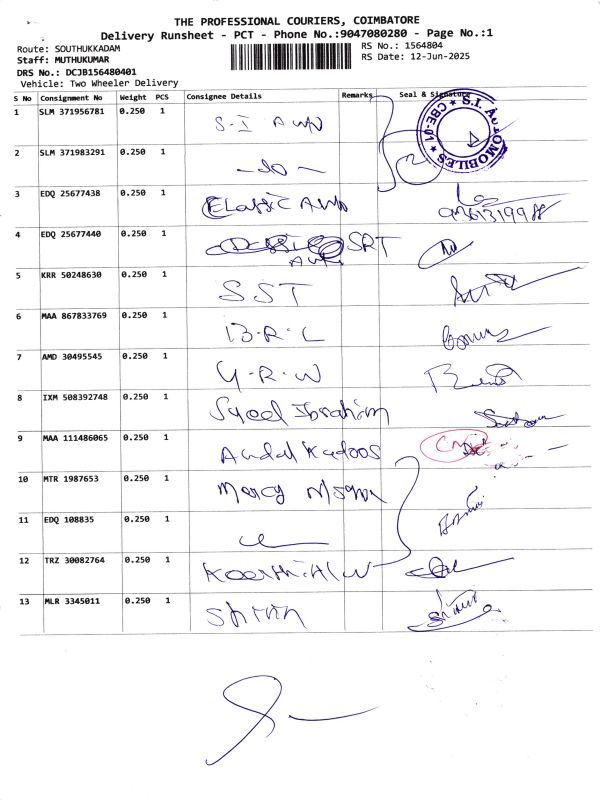 THE PROFESSIONAL COURIERS, COIMBATORE
Delivery Runsheet - PCT - Phone No.:9047080280 - Page No.:1
Route: SOUTHUKKADAM RS No.: 1564804
Staff: MUTHUKUMAR RS Date: 12-Jun-2025
DRS No.: DCJB156480401
Vehicle: Two Wheeler Delivery
S No Consignment No Weight PCS Consignee Details Remarks Seal & Signature
1 SLM 371956781 0.250 1 S-I Auto
S.I. AUTOMOBILES ★ CBE-01 ★
2 SLM 371983291 0.250 1 -do-
3 EDQ 25677438 0.250 1 Classic Auto
4 EDQ 25677440 0.250 1 SRT
5 KRR 50248630 0.250 1 SST
6 MAA 867833769 0.250 1 B.R.L
7 AMD 30495545 0.250 1 Y-R-W
8 IXM 508392748 0.250 1 Syed Ibrahim
9 MAA 111486065 0.250 1
10 MTR 1987653 0.250 1 Mercy
11 EDQ 108835 0.250 1
12 TRZ 30082764 0.250 1
13 MLR 3345011 0.250 1